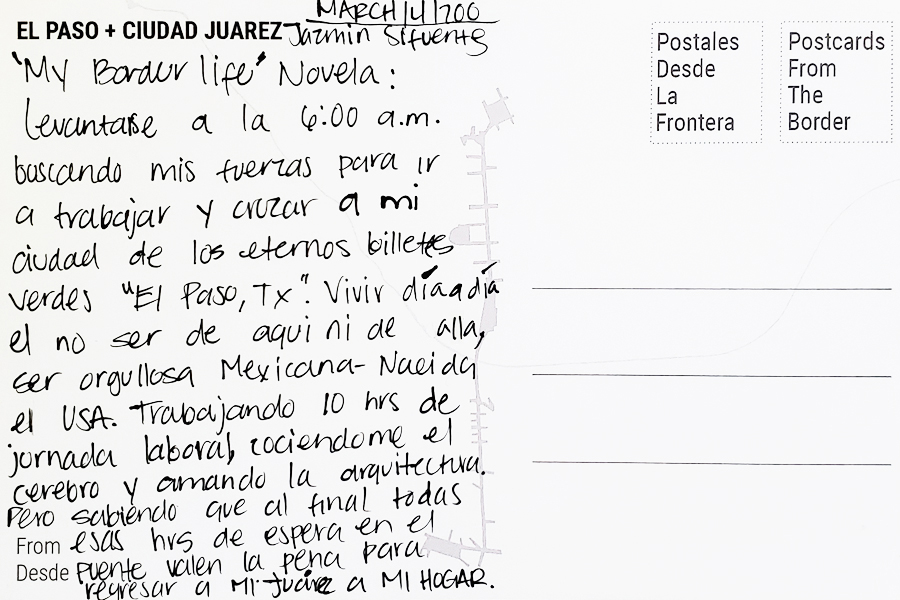 MARCH/4/200
EL PASO + CIUDAD JUAREZ Jazmin Sifuentes
"My Border life" Novela:
Levantarse a la 6:00 a.m.
buscando mis fuerzas para ir
a trabajar y cruzar a mi
ciudad de los eternos billetes
verdes "El Paso, Tx". Vivir día a día
el no ser de aqui ni de alla,
ser orgullosa Mexicana- Nacida
el USA. Trabajando 10 hrs de
jornada laboral, cociendome el
cerebro y amando la arquitectura.
Pero sabiendo que al final todas
From esas hrs de espera en el
Desde puente valen la pena para
regresar a Mi Juárez a MI HOGAR.
Postales
Desde
La
Frontera
Postcards
From
The
Border